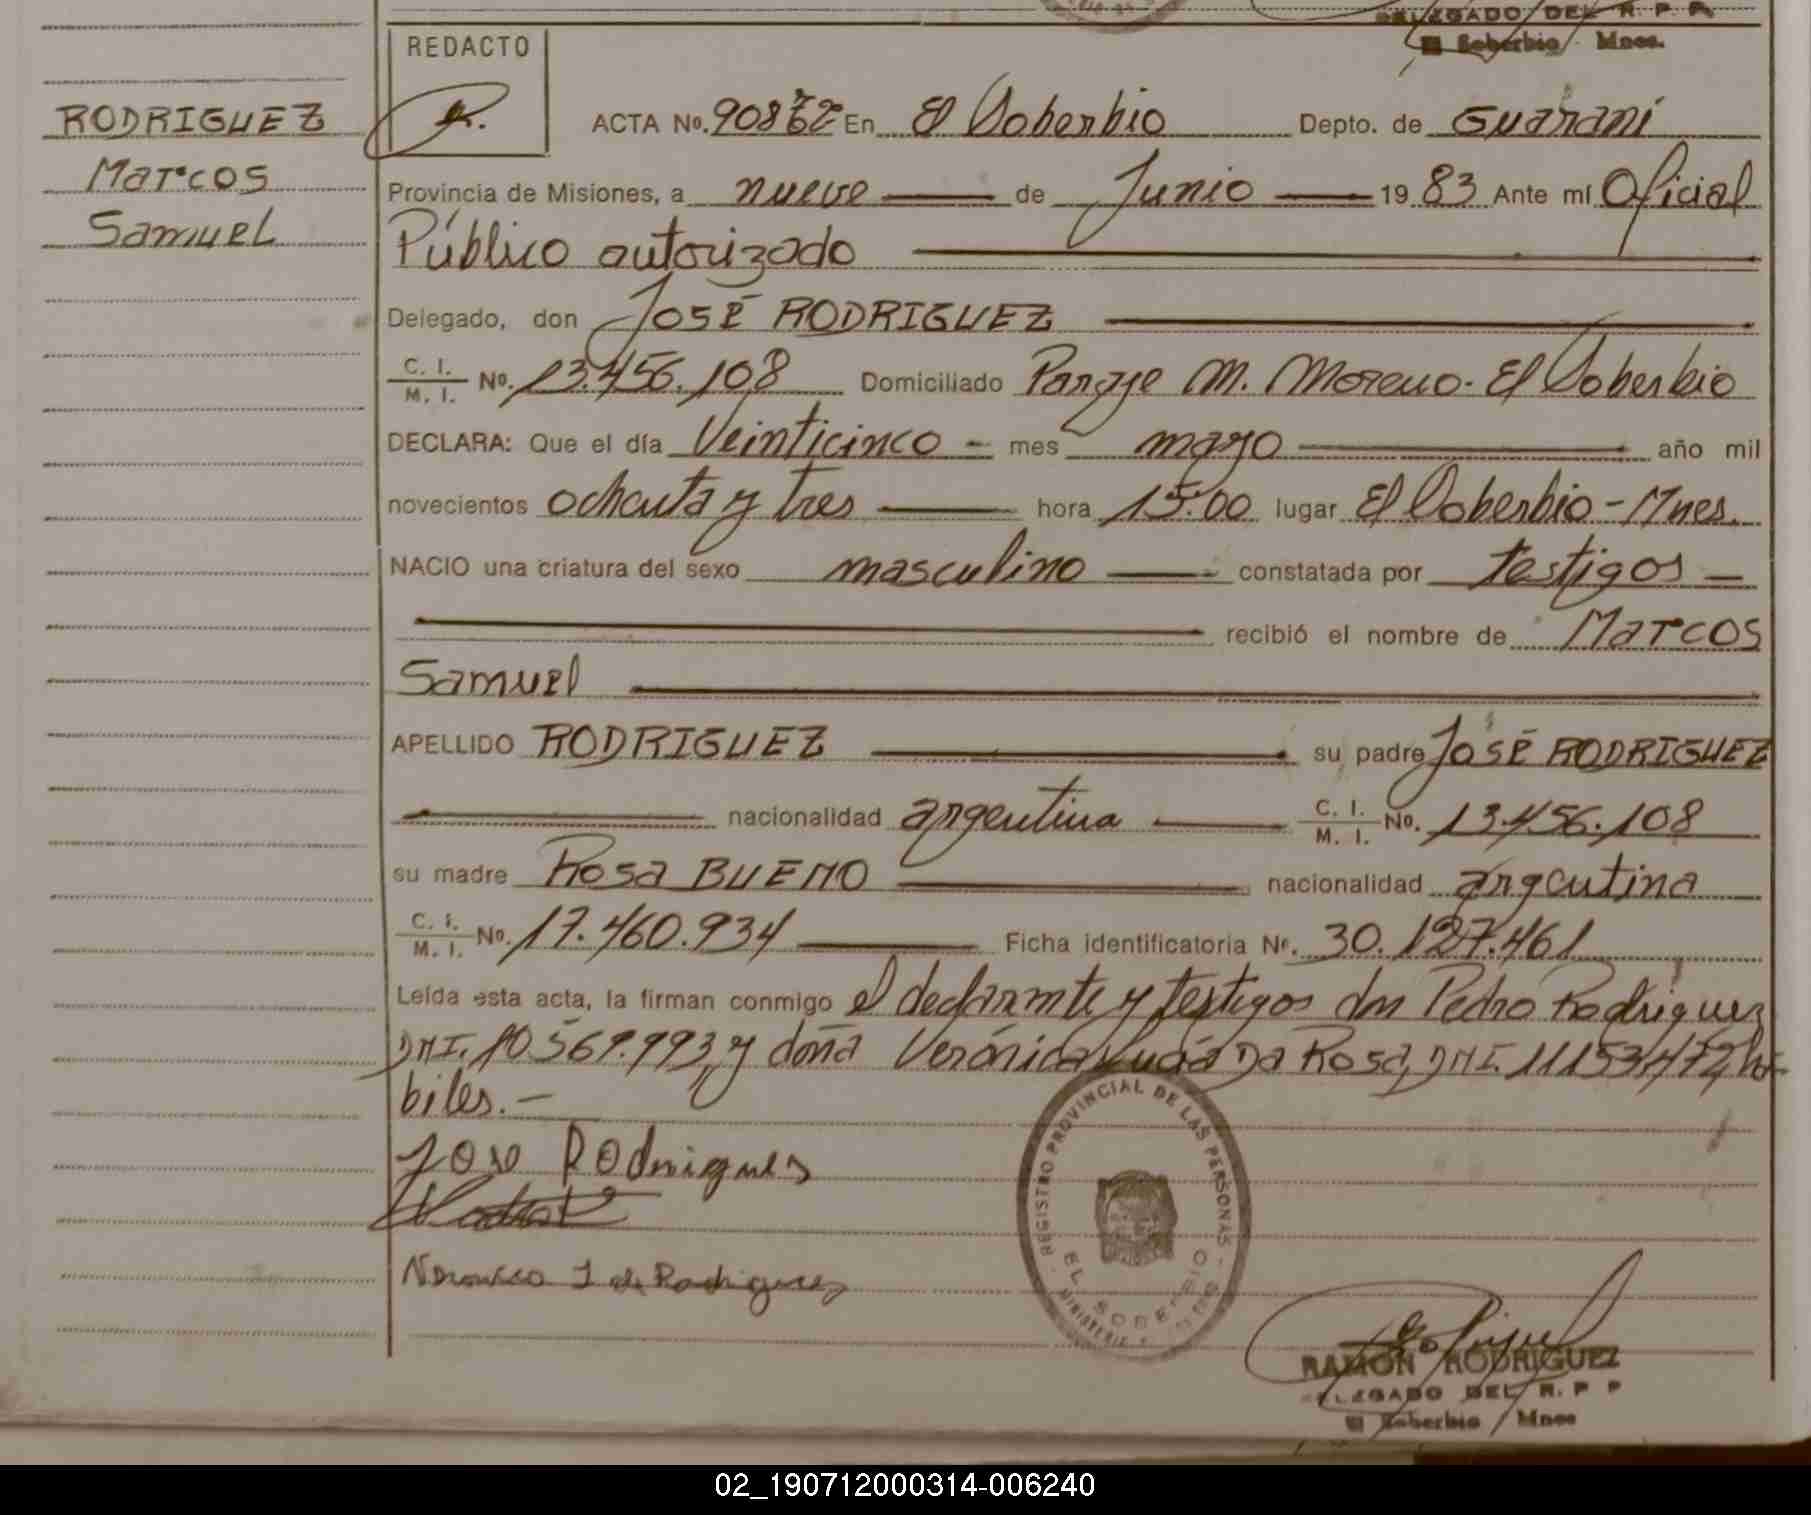 DELEGADO DEL R. P. P.
El Soberbio Mnes.
REDACTO
RODRIGUEZ
Marcos
Samuel
ACTA No. En El Soberbio Depto. de Guaraní
Provincia de Misiones, a nueve de Junio 1983 Ante mí Oficial
Público autorizado
Delegado, don José RODRIGUEZ
C. I.
M. I. No. 13.456.108 Domiciliado Paraje M. Moreno. El Soberbio
DECLARA: Que el día Veinticinco - mes mayo año mil
novecientos ochenta y tres hora 15:00 lugar El Soberbio - Mnes.
NACIO una criatura del sexo masculino constatada por testigos
recibió el nombre de Marcos
Samuel
APELLIDO RODRIGUEZ su padre José RODRIGUEZ
nacionalidad argentina C. I.
M. I. No. 13.456.108
su madre Rosa BUENO nacionalidad argentina
C. I.
M. I. No. 17.460.934 Ficha identificatoria No. 30.127.461
Leída esta acta, la firman conmigo el declarante y testigos don Pedro Rodriguez
DNI. 10.569.993, y doña Verónica Da Rosa, DNI. 11153472, há-
biles.-
Jose Rodrigues
de Rodriguez
REGISTRO PROVINCIAL DE LAS PERSONAS
EL SOBERBIO
RAMON RODRIGUEZ
DELEGADO DEL R. P. P
El Soberbio Mnes
02_190712000314-006240